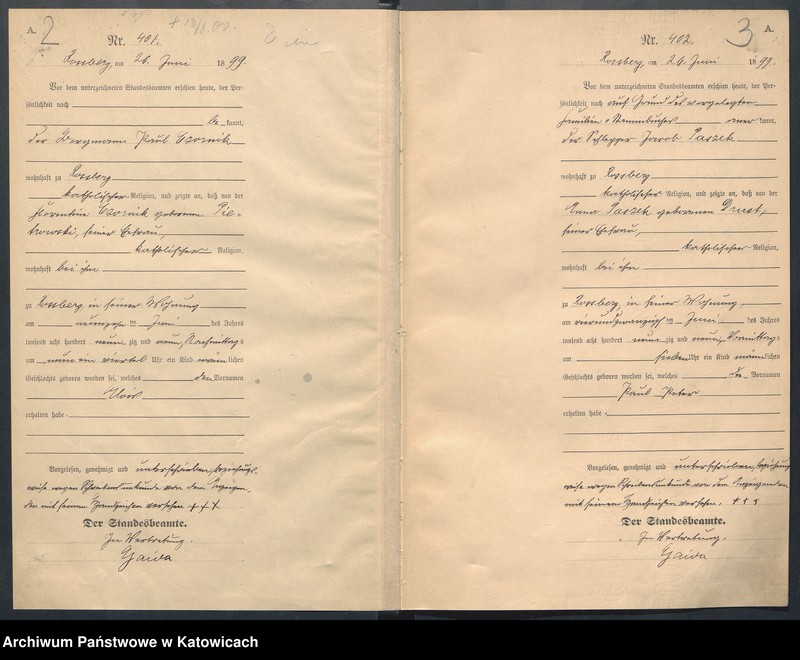 A. 2
Nr. 481.
Rossberg, am 26. Juni 1899.
Vor dem unterzeichneten Standesbeamten erschien heute, der Per-
sönlichkeit nach
be kannt,
der Bergmann Paul Czornik
wohnhaft zu Rossberg
katholischer Religion, und zeigte an, daß von der
Florentine Czornik geborenen Pie-
trowski, seiner Ehefrau,
katholischer Religion,
wohnhaft bei ihm
zu Rossberg in seiner Wohnung
am neunzehn ten Juni des Jahres
tausend acht hundert neun zig und neun, Nachmittags
um neun ein viertel Uhr ein Kind männlichen
Geschlechts geboren worden sei, welches den Vornamen
erhalten habe.
Vorgelesen, genehmigt und unterschrieben, beziehungs-
weise wegen Schreibensunkunde von dem Anzeigen-
den mit seinem Handzeichen versehen. + + +
Der Standesbeamte.
In Vertretung.
Gaida
3 A.
Nr. 402.
Rossberg, am 26. Juni 1899.
Vor dem unterzeichneten Standesbeamten erschien heute, der Per-
sönlichkeit nach auf Grund des vorgelegten
Familien-Stammbuches aner kannt,
der Schlepper Jacob Paszek
wohnhaft zu Rossberg
katholischer Religion, und zeigte an, daß von der
Anna Paszek geborenen Drust,
seiner Ehefrau,
katholischer Religion,
wohnhaft bei ihm
zu Rossberg, in seiner Wohnung,
am vierundzwanzigsten Juni des Jahres
tausend acht hundert neun zig und neun, Vormittags
um sieben Uhr ein Kind männlichen
Geschlechts geboren worden sei, welches die Vornamen
Paul Peter
erhalten habe.
Vorgelesen, genehmigt und unterschrieben, beziehungs-
weise wegen Schreibensunkunde von dem Anzeigenden
mit seinem Handzeichen versehen. + + +
Der Standesbeamte.
In Vertretung.
Gaida
Archiwum Państwowe w Katowicach